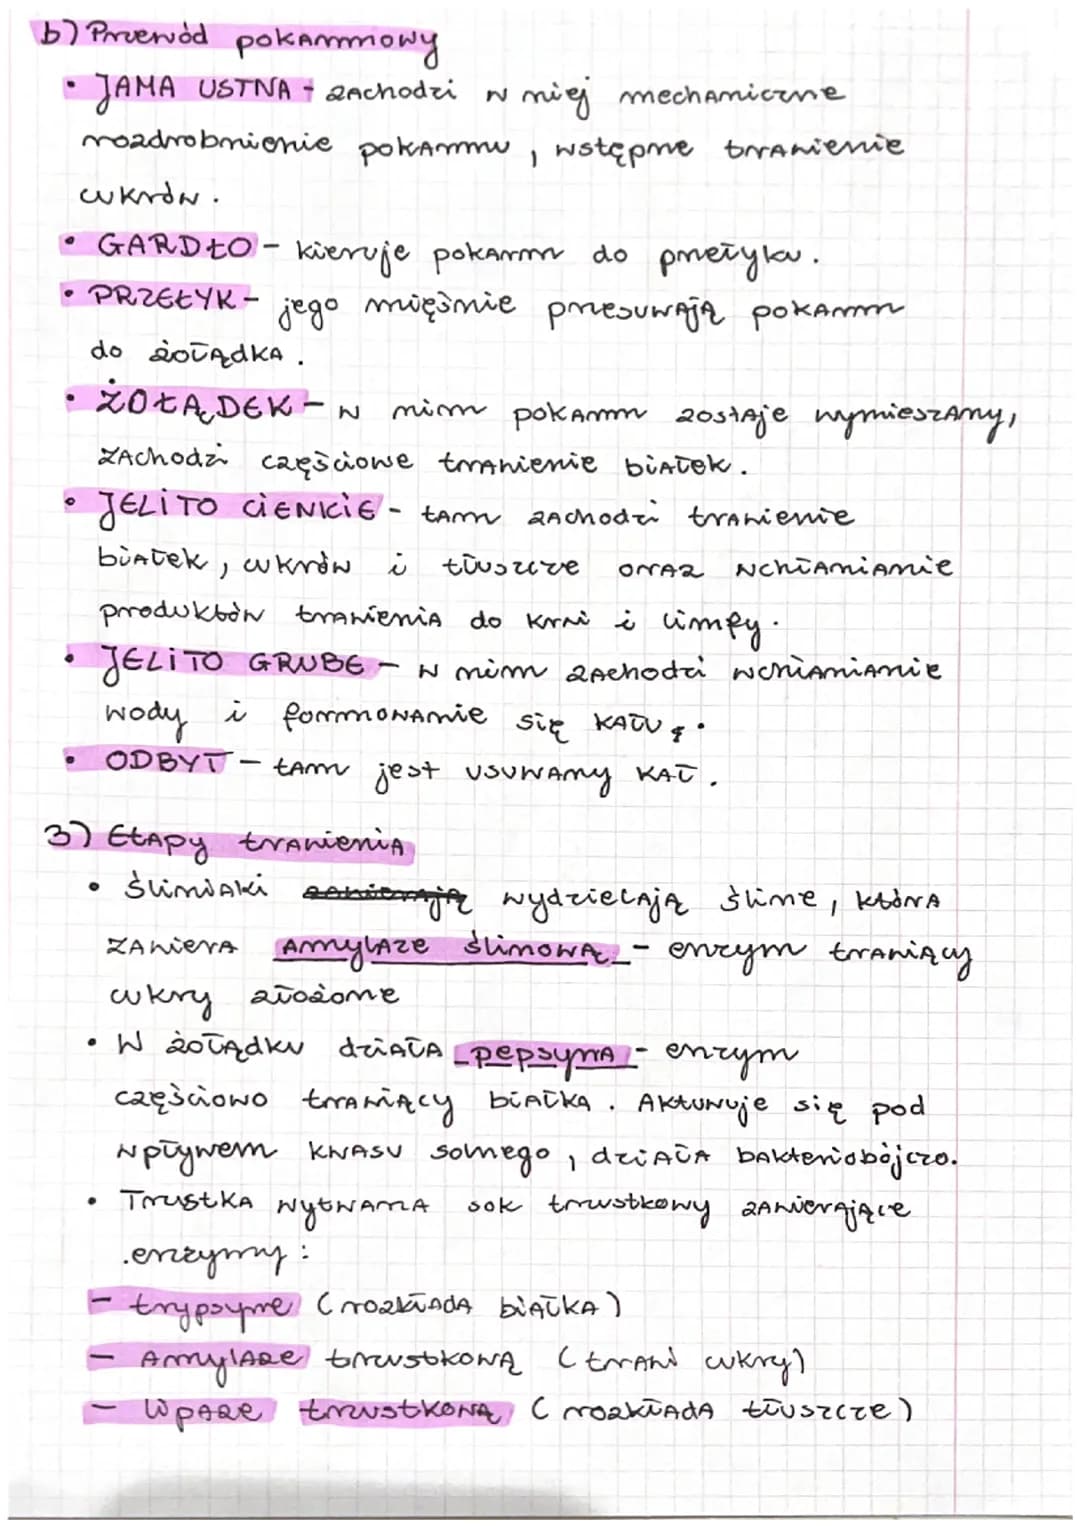 b) Przewód pokarmowy
• JAMA USTNA - zachodzi w niej mechaniczne
rozdrobnienie pokarmu, wstępne trawienie
cukrów.
• GARDŁO - kieruje pokarm do przełyku.
• PRZEŁYK - jego mięśnie przesuwają pokarm
do żołądka.
• ŻOŁĄDEK - w nim pokarm zostaje wymieszany,
zachodzi częściowe trawienie białek.
• JELITO CIENKIE - tam zachodzi trawienie
białek, cukrów i tłuszcze oraz wchłanianie
produktów trawienia do krwi i limfy.
• JELITO GRUBE - w nim zachodzi wchłanianie
wody i formowanie się kału.
• ODBYT - tam jest usuwany kał.
3) Etapy trawienia
• Ślinianki wydzielają ślinę, która
zawiera amylazę ślinową - enzym trawiący
cukry złożone
• W żołądku działa pepsyna - enzym
częściowo trawiący białka. Aktywuje się pod
wpływem kwasu solnego, działa bakteriobójczo.
• Trzustka wytwarza sok trzustkowy zawierające
enzymy:
- trypsynę (rozkłada białka)
- Amylazę trzustkową (trawi cukry)
- lipazę trzustkową (rozkłada tłuszcze)